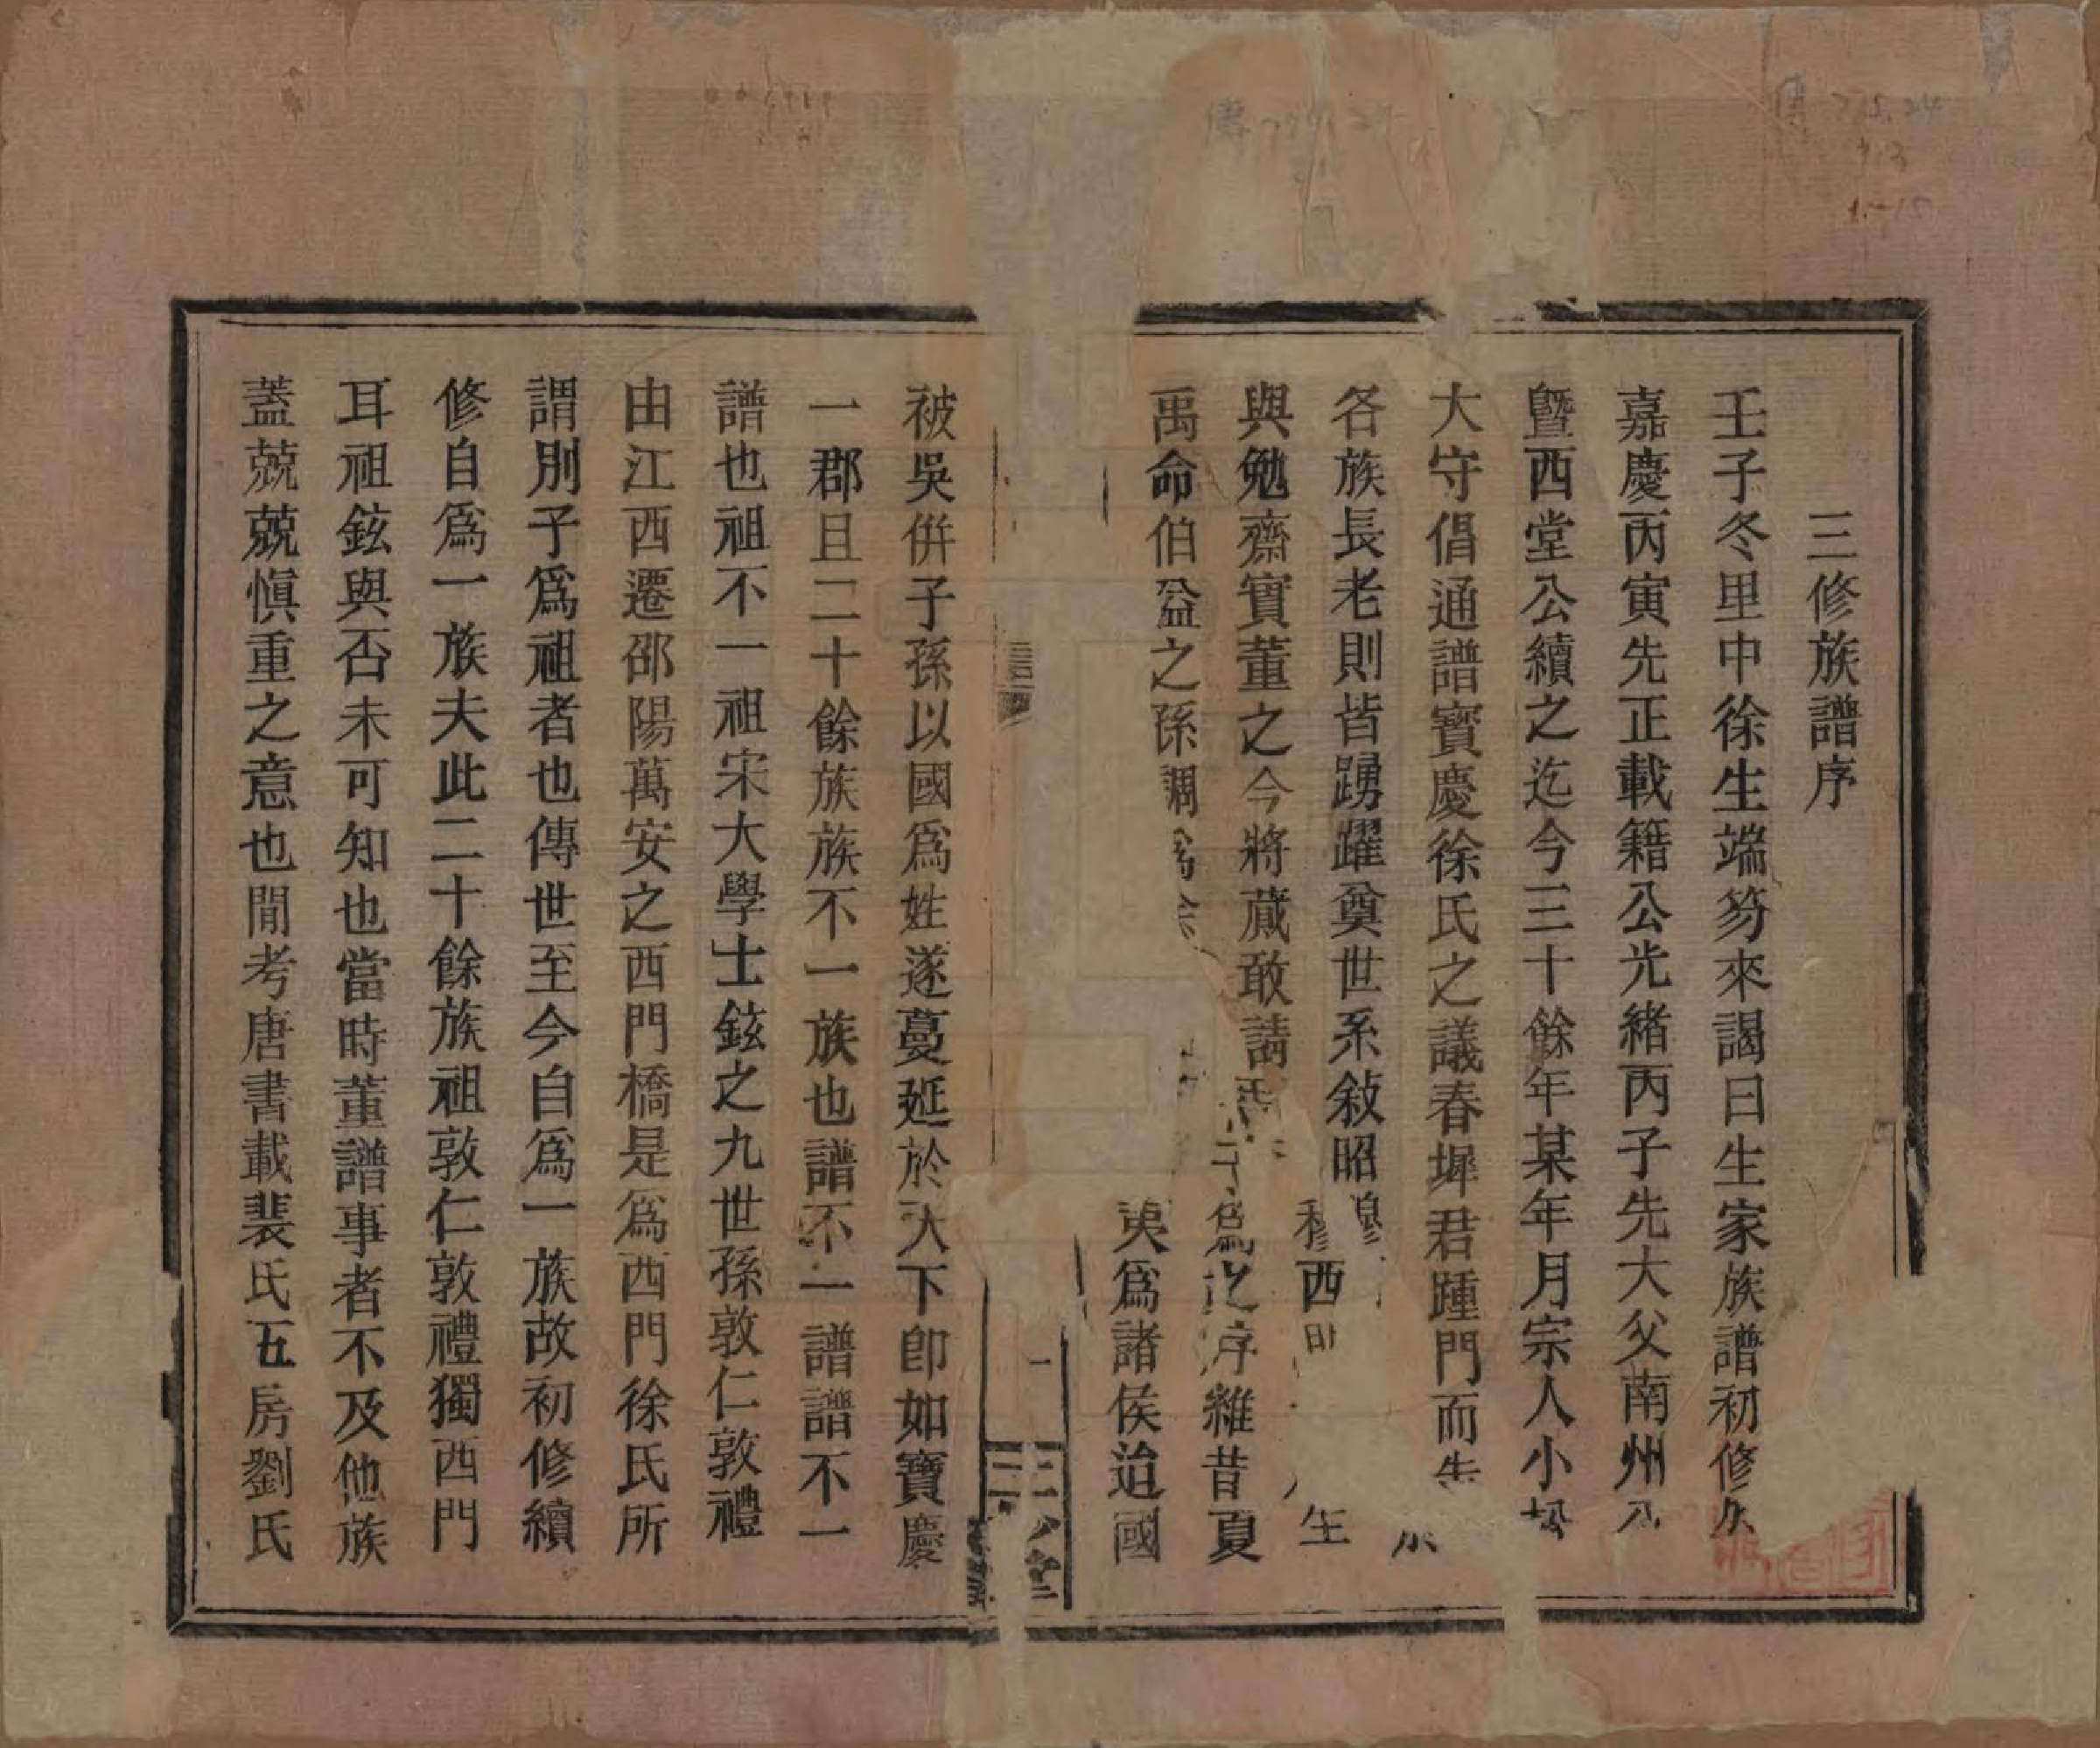 三修族譜序
壬子冬里中徐生端笏來謁曰生家族譜初修
嘉慶丙寅先正載籍公光緒丙子先大父南州
曁西堂公續之迄今三十餘年某年月宗人小
大守倡通譜寶慶徐氏之議春墀君踵門而告
各族長老則皆踴躍奠世系敍昭穆
與勉齋實董之今將蕆敢請 西 生
爲之序維昔夏
禹命伯益之孫調爲徐 夷爲諸侯迨國
被吳併子孫以國爲姓遂蔓延於天下卽如寶慶
一郡且二十餘族族不一族也譜不一譜譜不一
譜也祖不一祖宋大學士鉉之九世孫敦仁敦禮
由江西遷邵陽萬安之西門橋是爲西門徐氏所
謂別子爲祖者也傳世至今自爲一族故初修續
修自爲一族夫此二十餘族祖敦仁敦禮獨西門
耳祖鉉與否未可知也當時董譜事者不及他族
蓋兢兢愼重之意也閒考唐書載裴氏五房劉氏